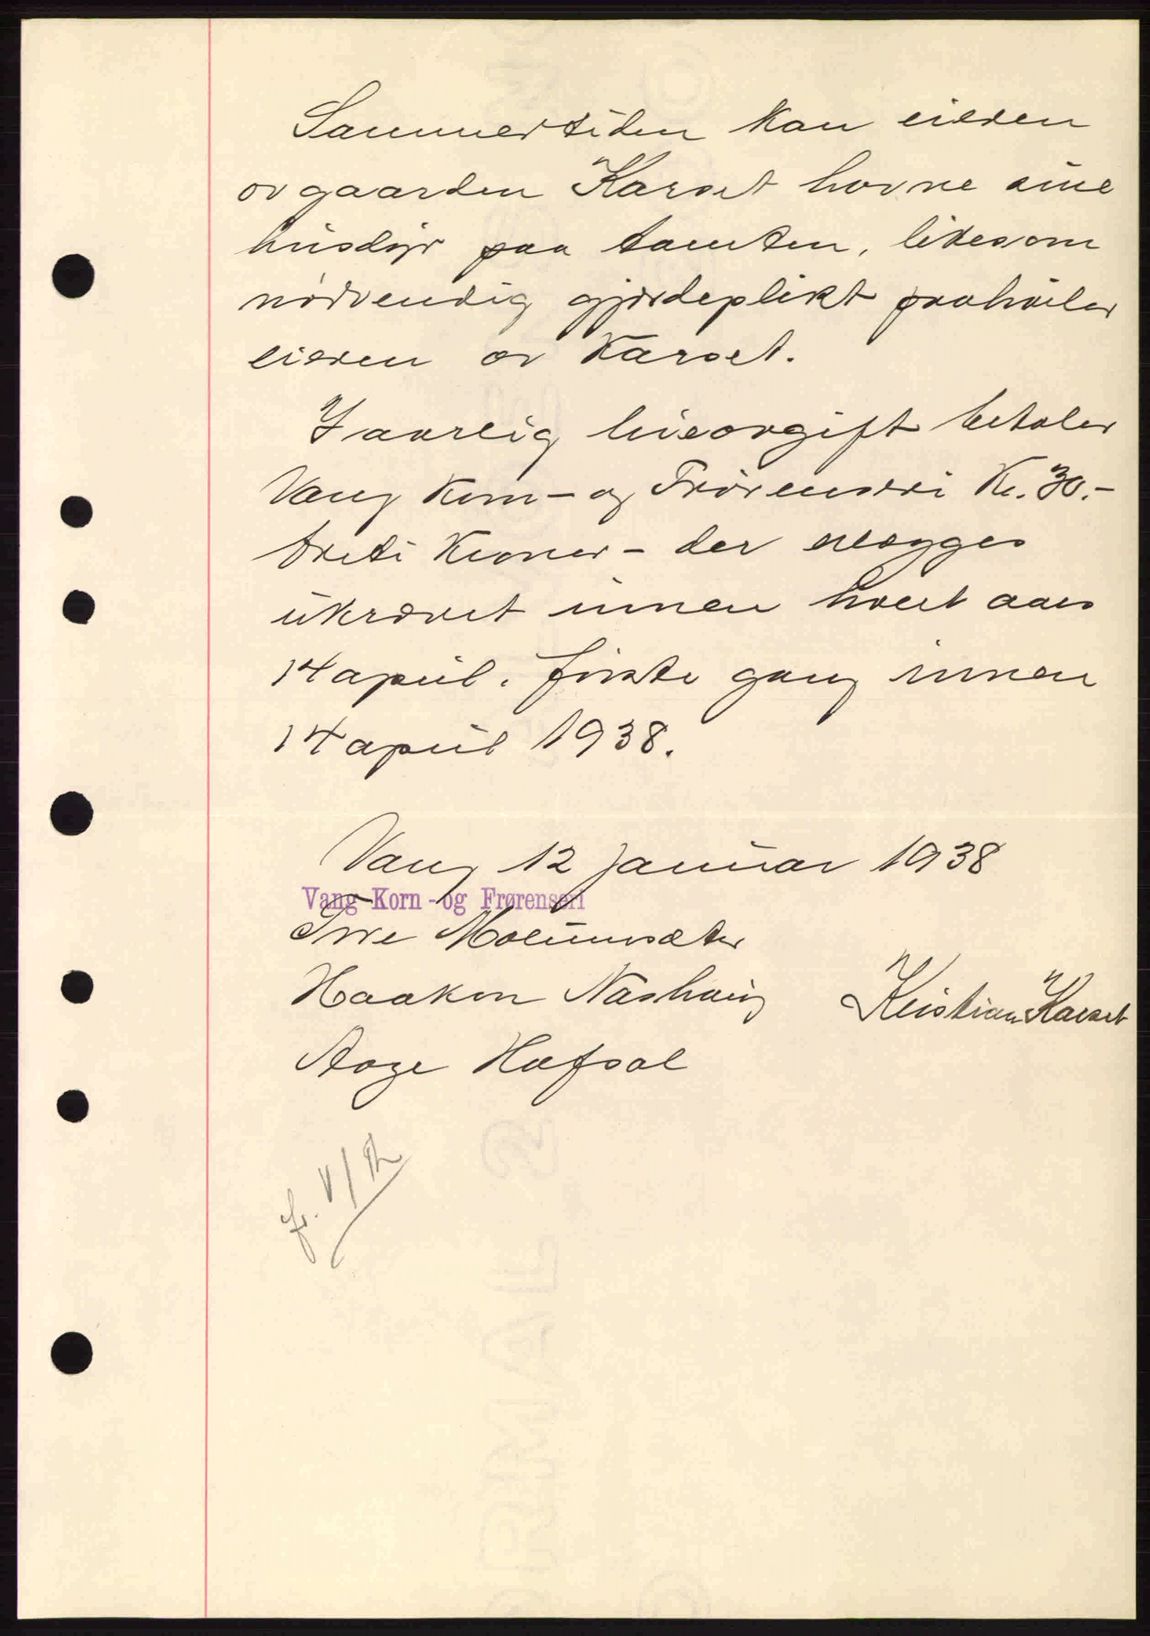 Sommertiden kan eieren
av gaarden Karset havne sine
husdyr paa tomten, likesom
nødvendig gjerdeplikt paahviler
eieren av Karset.
I aarlig leieavgift betaler
Vang Korn- og Frørenseri Kr. 30.-
treti Kroner - der erlægges
ukrævet innen hvert aars
14 april. første gang innen
14 april 1938.
Vang 12 januar 1938
Vang Korn- og Frørenseri
Haakon Nashaug
Kristian Karset
Aage Hafsal